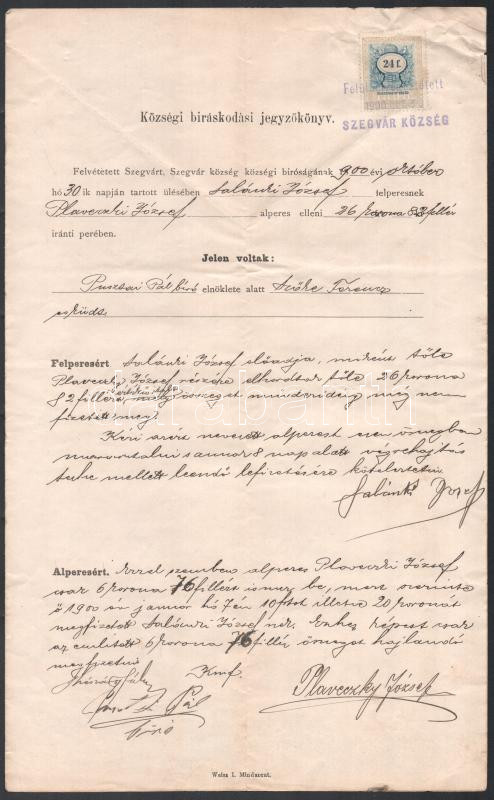 24 f.
SZEGVÁR KÖZSÉG
Községi biráskodási jegyzőkönyv.
Felvétetett Szegvárt, Szegvár község községi biróságának 900 évi október
hó 30 ik napján tartott ülésében Salánki József telperesnek
Plaveczki József alperes elleni 26 korona 82 fillér
iránti perében.
Jelen voltak:
Pusztai Pál biró elnöklete alatt Szőke Ferencz
esküdt
Felperesért Salánki József előadja, miként tőle
Plaveczky József részére elhordtak tőle 26 korona
82 fillére, mely összeget mindezideig meg nem
fizetett meg.
Kéri azért nevezett alperest ezen összegben
marasztalni s annak 8 nap alatt végrehajtás
terhe mellett leendő lefizetésére köteleztetni
Salánki József
Alperesért. Ezzel szemben alperes Plaveczki József
csak 6 korona 76 fillért ismer be, mert szerinte
ő 1900 év január hó 7én 10 frtot illetve 20 koronát
megfizetett Salánki József nek. Ehhez képest csak
az emlitett 6 korona 76 fillér összeget hajlandó
megfizetni
Kmf.
Pál
biró
Plaveczky József
Weisz I. Mindszent.